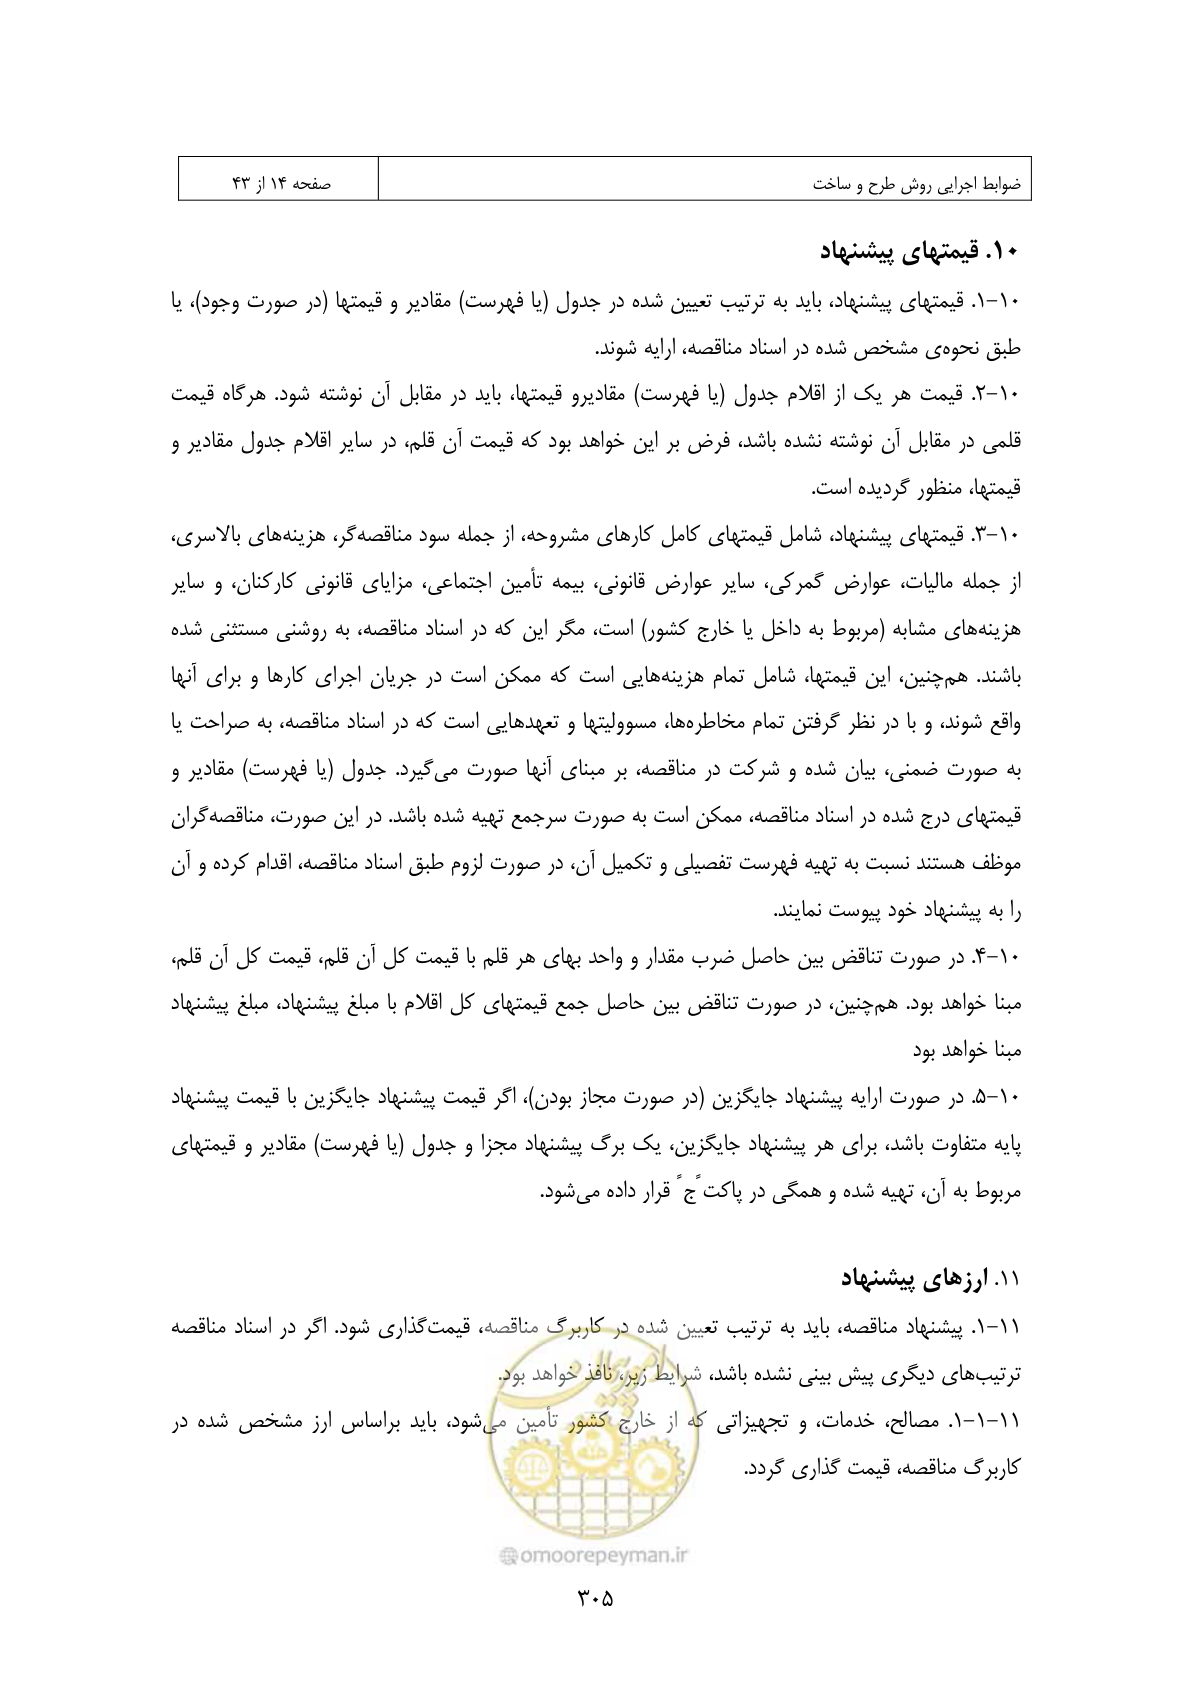 ضوابط اجرایی روش طرح و ساخت
صفحه ۱۴ از ۴۳
۱۰. قیمتهای پیشنهاد
۱۰-۱. قیمتهای پیشنهاد، باید به ترتیب تعیین شده در جدول (یا فهرست) مقادیر و قیمتها (در صورت وجود)، یا
طبق نحوه‌ی مشخص شده در اسناد مناقصه، ارایه شوند.
۱۰-۲. قیمت هر یک از اقلام جدول (یا فهرست) مقادیرو قیمتها، باید در مقابل آن نوشته شود. هرگاه قیمت
قلمی در مقابل آن نوشته نشده باشد، فرض بر این خواهد بود که قیمت آن قلم، در سایر اقلام جدول مقادیر و
قیمتها، منظور گردیده است.
۱۰-۳. قیمتهای پیشنهاد، شامل قیمتهای کامل کارهای مشروحه، از جمله سود مناقصه‌گر، هزینه‌های بالاسری،
از جمله مالیات، عوارض گمرکی، سایر عوارض قانونی، بیمه تأمین اجتماعی، مزایای قانونی کارکنان، و سایر
هزینه‌های مشابه (مربوط به داخل یا خارج کشور) است، مگر این که در اسناد مناقصه، به روشنی مستثنی شده
باشند. هم‌چنین، این قیمتها، شامل تمام هزینه‌هایی است که ممکن است در جریان اجرای کارها و برای آنها
واقع شوند، و با در نظر گرفتن تمام مخاطره‌ها، مسوولیتها و تعهدهایی است که در اسناد مناقصه، به صراحت یا
به صورت ضمنی، بیان شده و شرکت در مناقصه، بر مبنای آنها صورت می‌گیرد. جدول (یا فهرست) مقادیر و
قیمتهای درج شده در اسناد مناقصه، ممکن است به صورت سرجمع تهیه شده باشد. در این صورت، مناقصه‌گران
موظف هستند نسبت به تهیه فهرست تفصیلی و تکمیل آن، در صورت لزوم طبق اسناد مناقصه، اقدام کرده و آن
را به پیشنهاد خود پیوست نمایند.
۱۰-۴. در صورت تناقض بین حاصل ضرب مقدار و واحد بهای هر قلم با قیمت کل آن قلم، قیمت کل آن قلم،
مبنا خواهد بود. هم‌چنین، در صورت تناقض بین حاصل جمع قیمتهای کل اقلام با مبلغ پیشنهاد، مبلغ پیشنهاد
مبنا خواهد بود
۱۰-۵. در صورت ارایه پیشنهاد جایگزین (در صورت مجاز بودن)، اگر قیمت پیشنهاد جایگزین با قیمت پیشنهاد
پایه متفاوت باشد، برای هر پیشنهاد جایگزین، یک برگ پیشنهاد مجزا و جدول (یا فهرست) مقادیر و قیمتهای
مربوط به آن، تهیه شده و همگی در پاکت ًج ً قرار داده می‌شود.
۱۱. ارزهای پیشنهاد
۱۱-۱. پیشنهاد مناقصه، باید به ترتیب تعیین شده در کاربرگ مناقصه، قیمت‌گذاری شود. اگر در اسناد مناقصه
ترتیب‌های دیگری پیش بینی نشده باشد، شرایط زیر، نافذ خواهد بود.
۱۱-۱-۱. مصالح، خدمات، و تجهیزاتی که از خارج کشور تأمین می‌شود، باید براساس ارز مشخص شده در
کاربرگ مناقصه، قیمت گذاری گردد.
امور پیمان
@omoorepeyman.ir
۳۰۵